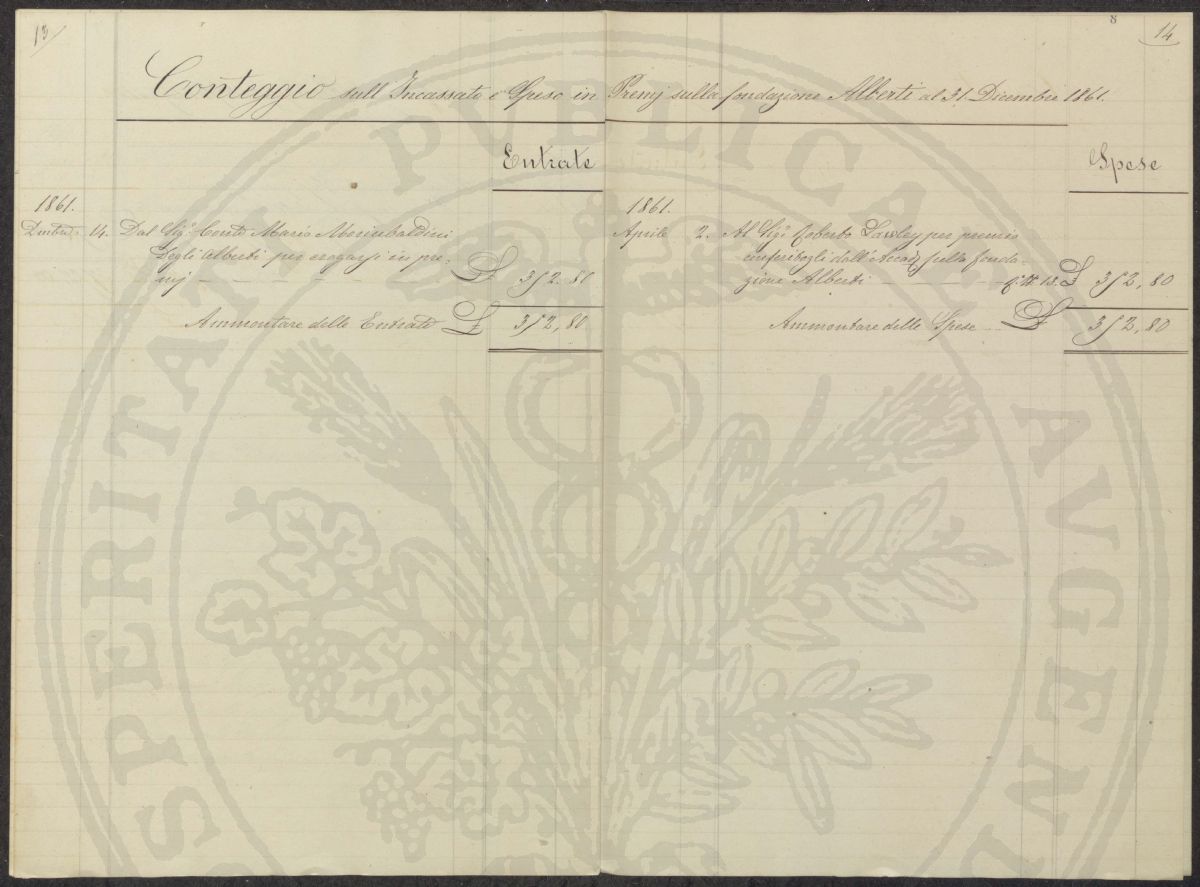 13
8
14
Conteggio sull'Incassato e Speso in Premj sulla fondazione Alberti al 31 Dicembre 1861.
Entrate
1861.
14. Dal Sigr. Conte Mario Mori Ubaldini
degli Alberti per erogarsi in pre-
mj £ 352.80
Ammontare delle Entrate £ 352,80
Spese
1861.
Aprile 2. Al Sigr. Roberto Lawley per premio
conferitogli dall'Accad. sulla fonda-
zione Alberti 18. £ 352,80
Ammontare delle Spese £ 352,80
SPERITATI PUBLICAE AVGEND